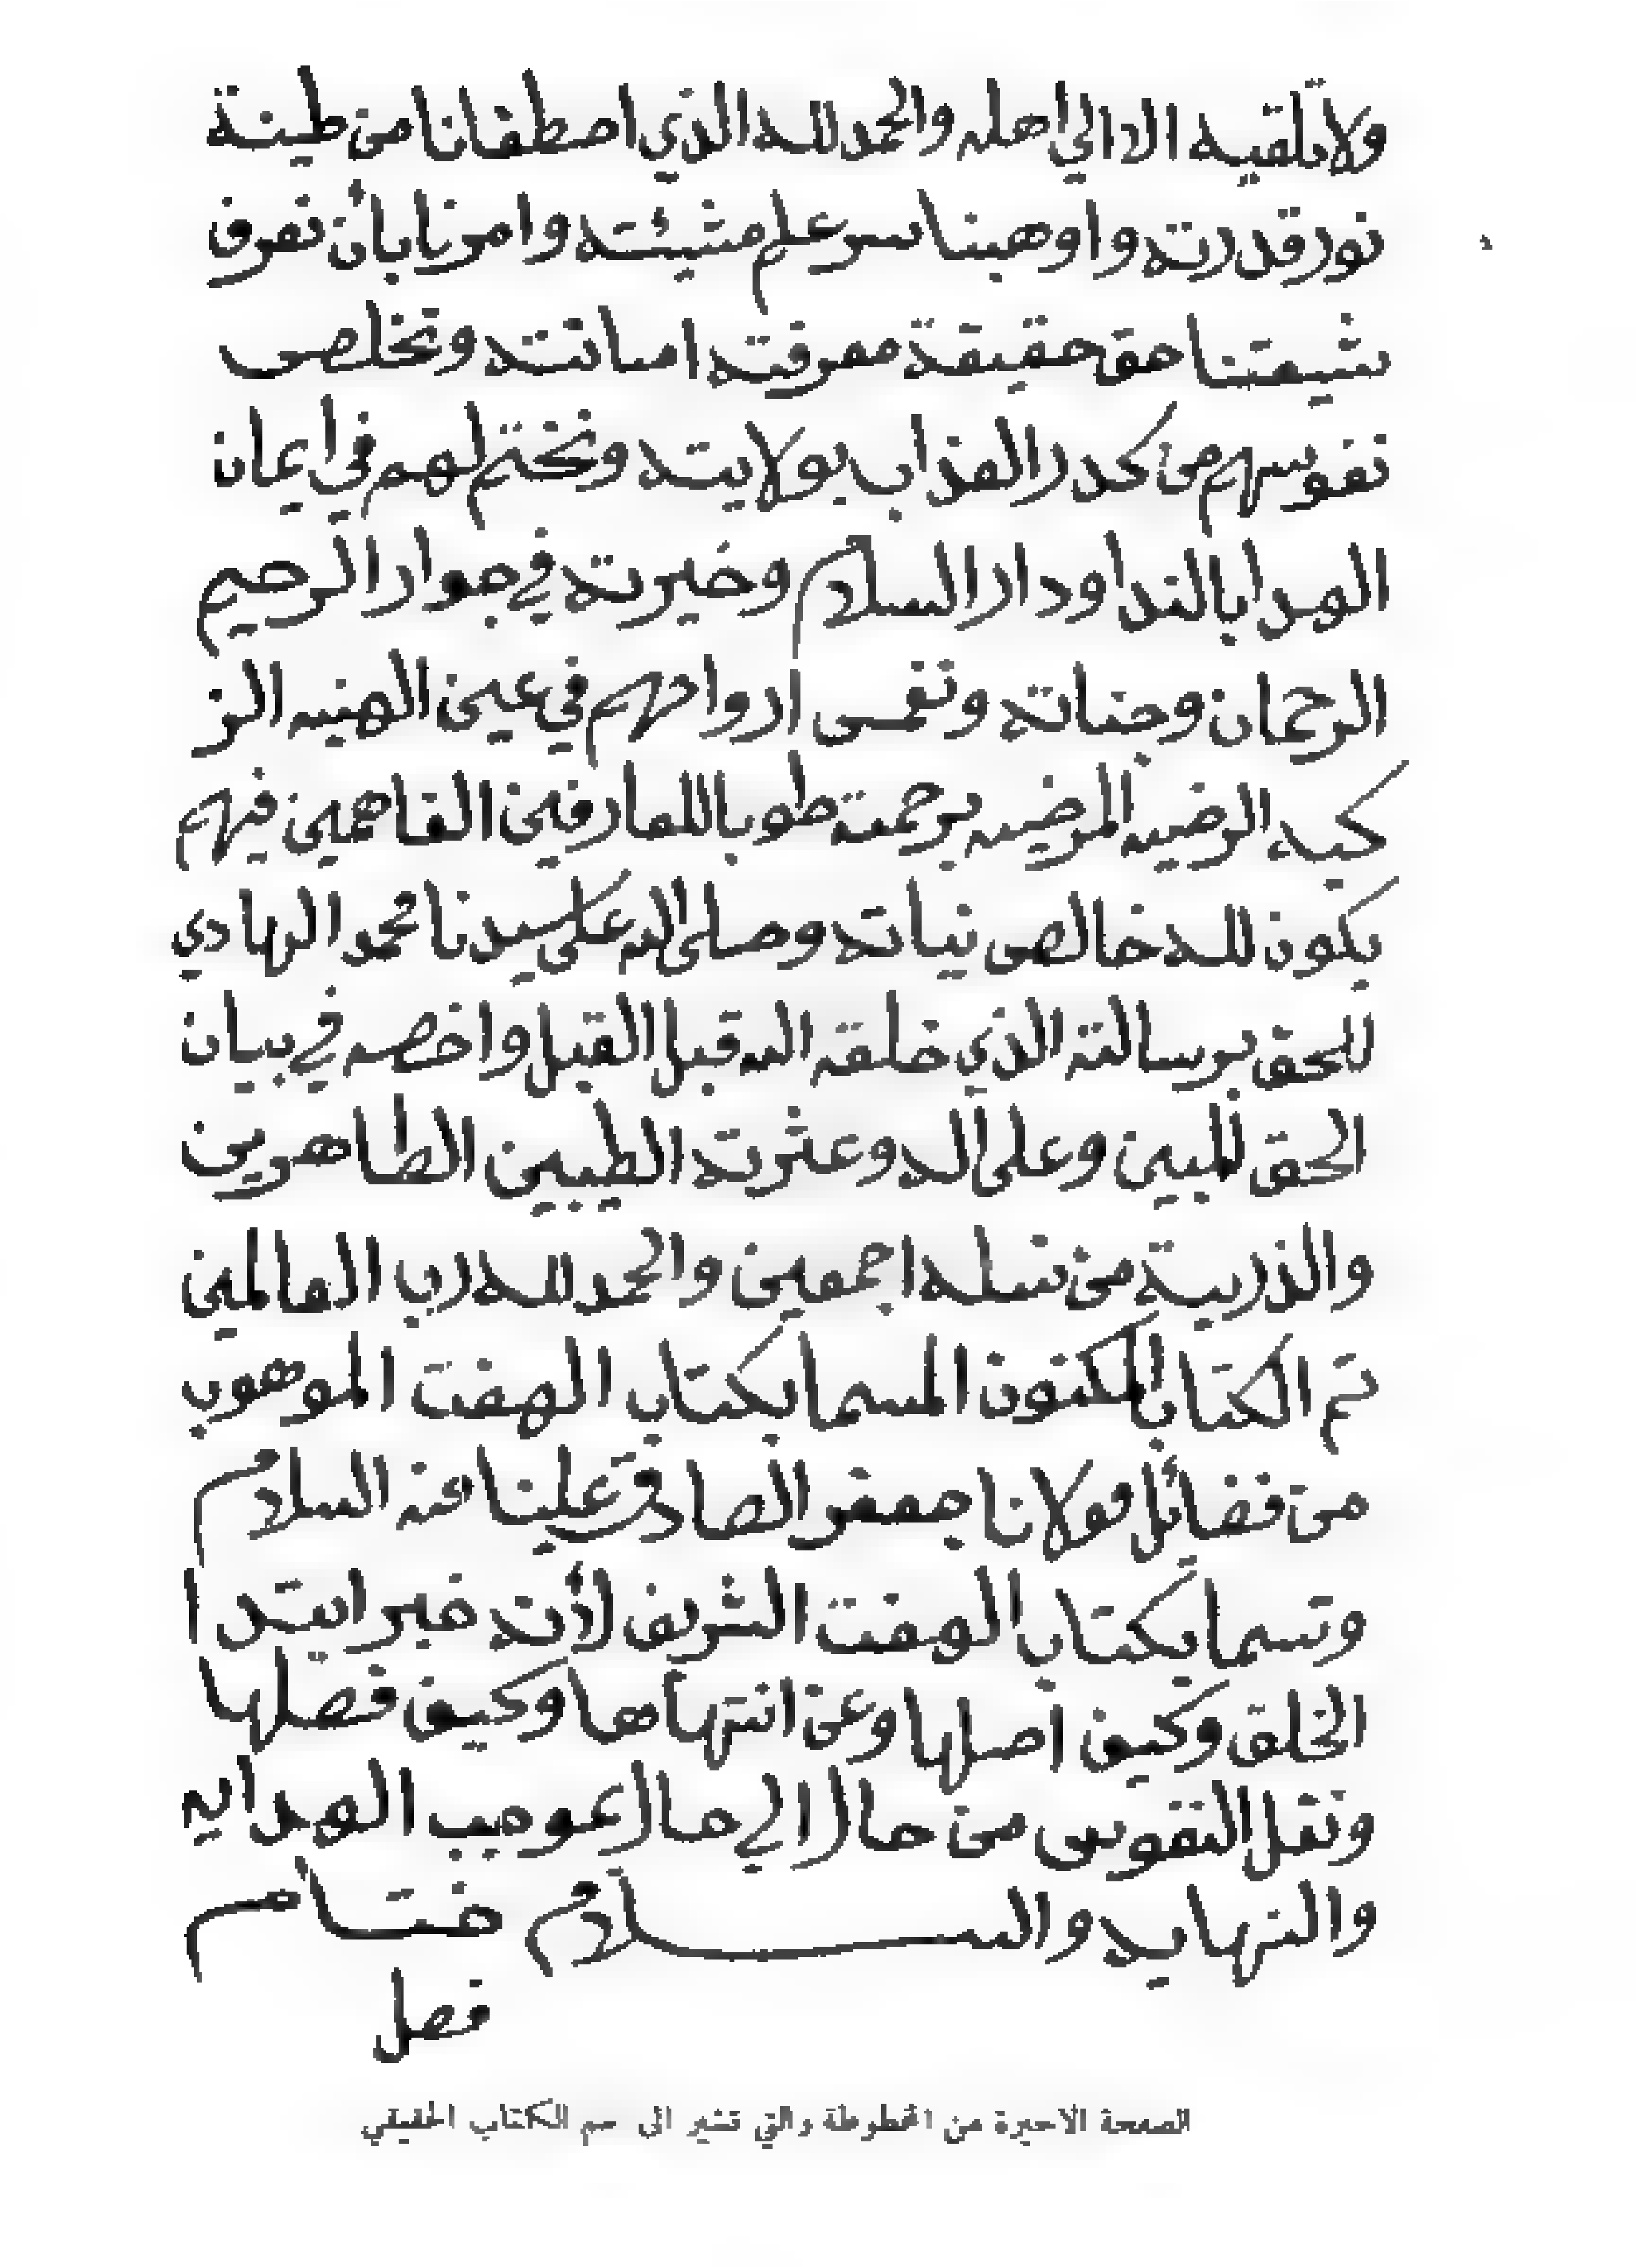 ولا تلقيه الا الي اهله والحمد لله الذي اصطفانا من طينة
نور قدرته واوهبنا سر علم مشيئته وامرنا بأن نعرف
شيعتنا حق حقيقة معرفته امانته وتخلص
نفوسهم من كدر العذاب بولايته ونختم لهم في ايمان
الهدا بالندا ودار السلام وخيرته في جوار الرحيم
الرحمان وجناته ونغمس ارواحهم في عين الهنيه الز
كيه الرضيه المرضيه برحمته طوبا للعارفين الفاهمين فيهم
يكون لله خالص نياته وصلى الله على سيدنا محمد الهادي
للحق برسالته الذي خلقه الله قبل القبل واخصه في بيان
الحق المبين وعلى اله وعثرته الطيبين الطاهرين
والذريية من نسله اجمعين والحمد لله رب العالمين
تم الكتاب المكنون المسما بكتاب الهفت الموهوب
من فضائل مولانا جعفر الصادق علينا منه السلام
وتسما بكتاب الهفت الشريف لأنه خبر ابتدا
الخلق وكيف اصلها وعن انتهاها وكيف فصلها
ونقل النفوس من حال الي حال بموجب الهدايه
والنهايه والسلام ختام
فصل
الصفحة الاخيرة من المخطوطة والتي تشير الى اسم الكتاب الحقيقي